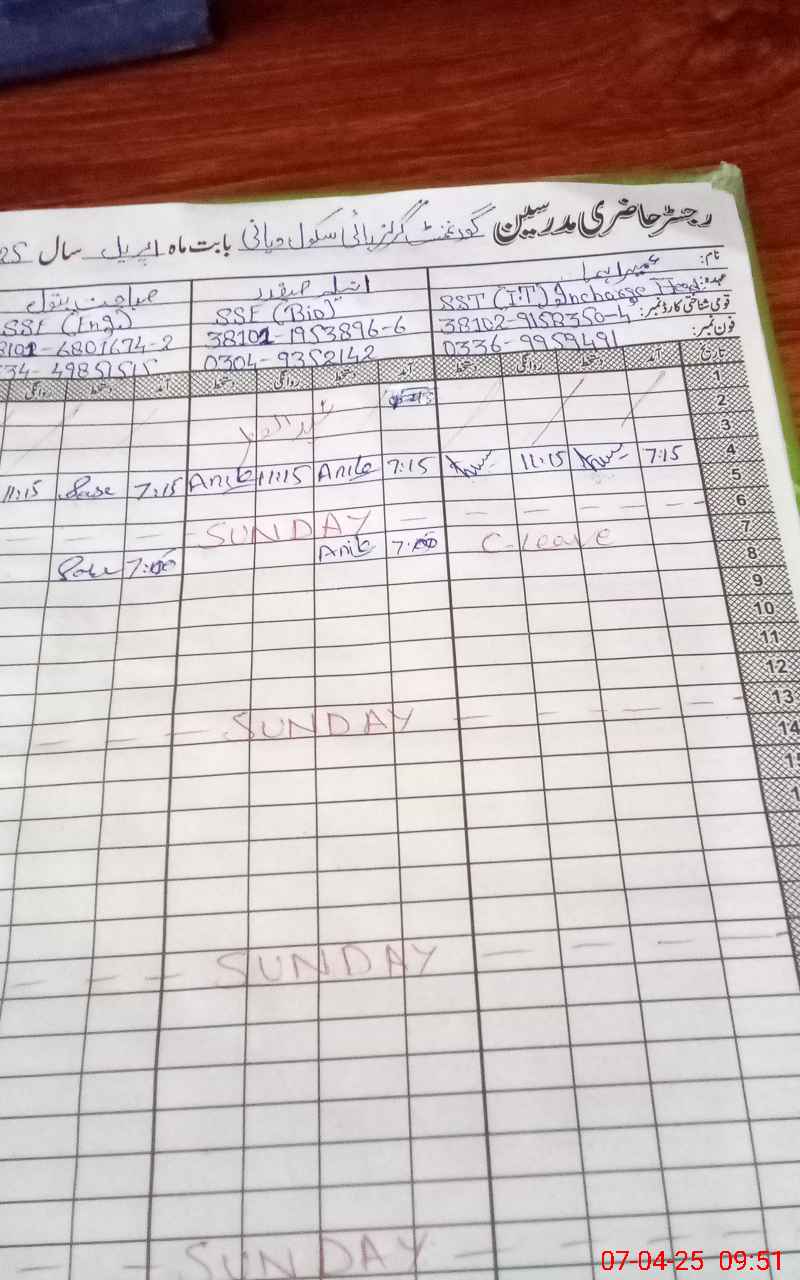 رجسٹر حاضری مدرسین گورنمنٹ گرلز ہائی سکول بابت ماہ اپریل سال 25
نام:
عہدہ: SST (IT) Incharge Head SSE (Bio) SSE (Eng)
قومی شناختی کارڈ نمبر: 38102-9158350-4 38101-1953896-6 8101-6801674-2
فون نمبر: 0336-9959491 0304-9352142 34-49851515
تاریخ آمد دستخط روانگی دستخط آمد دستخط روانگی دستخط آمد دستخط روانگی
1
2
3
4
5 7:15 11:15 7:15 Anila 11:15 Anila 7:15 11:15
6 SUNDAY
7 C-Leave 7:00 Anila 7:00
8
9
10
11
12
13 SUNDAY
14
SUNDAY
SUNDAY
07-04-25 09:51